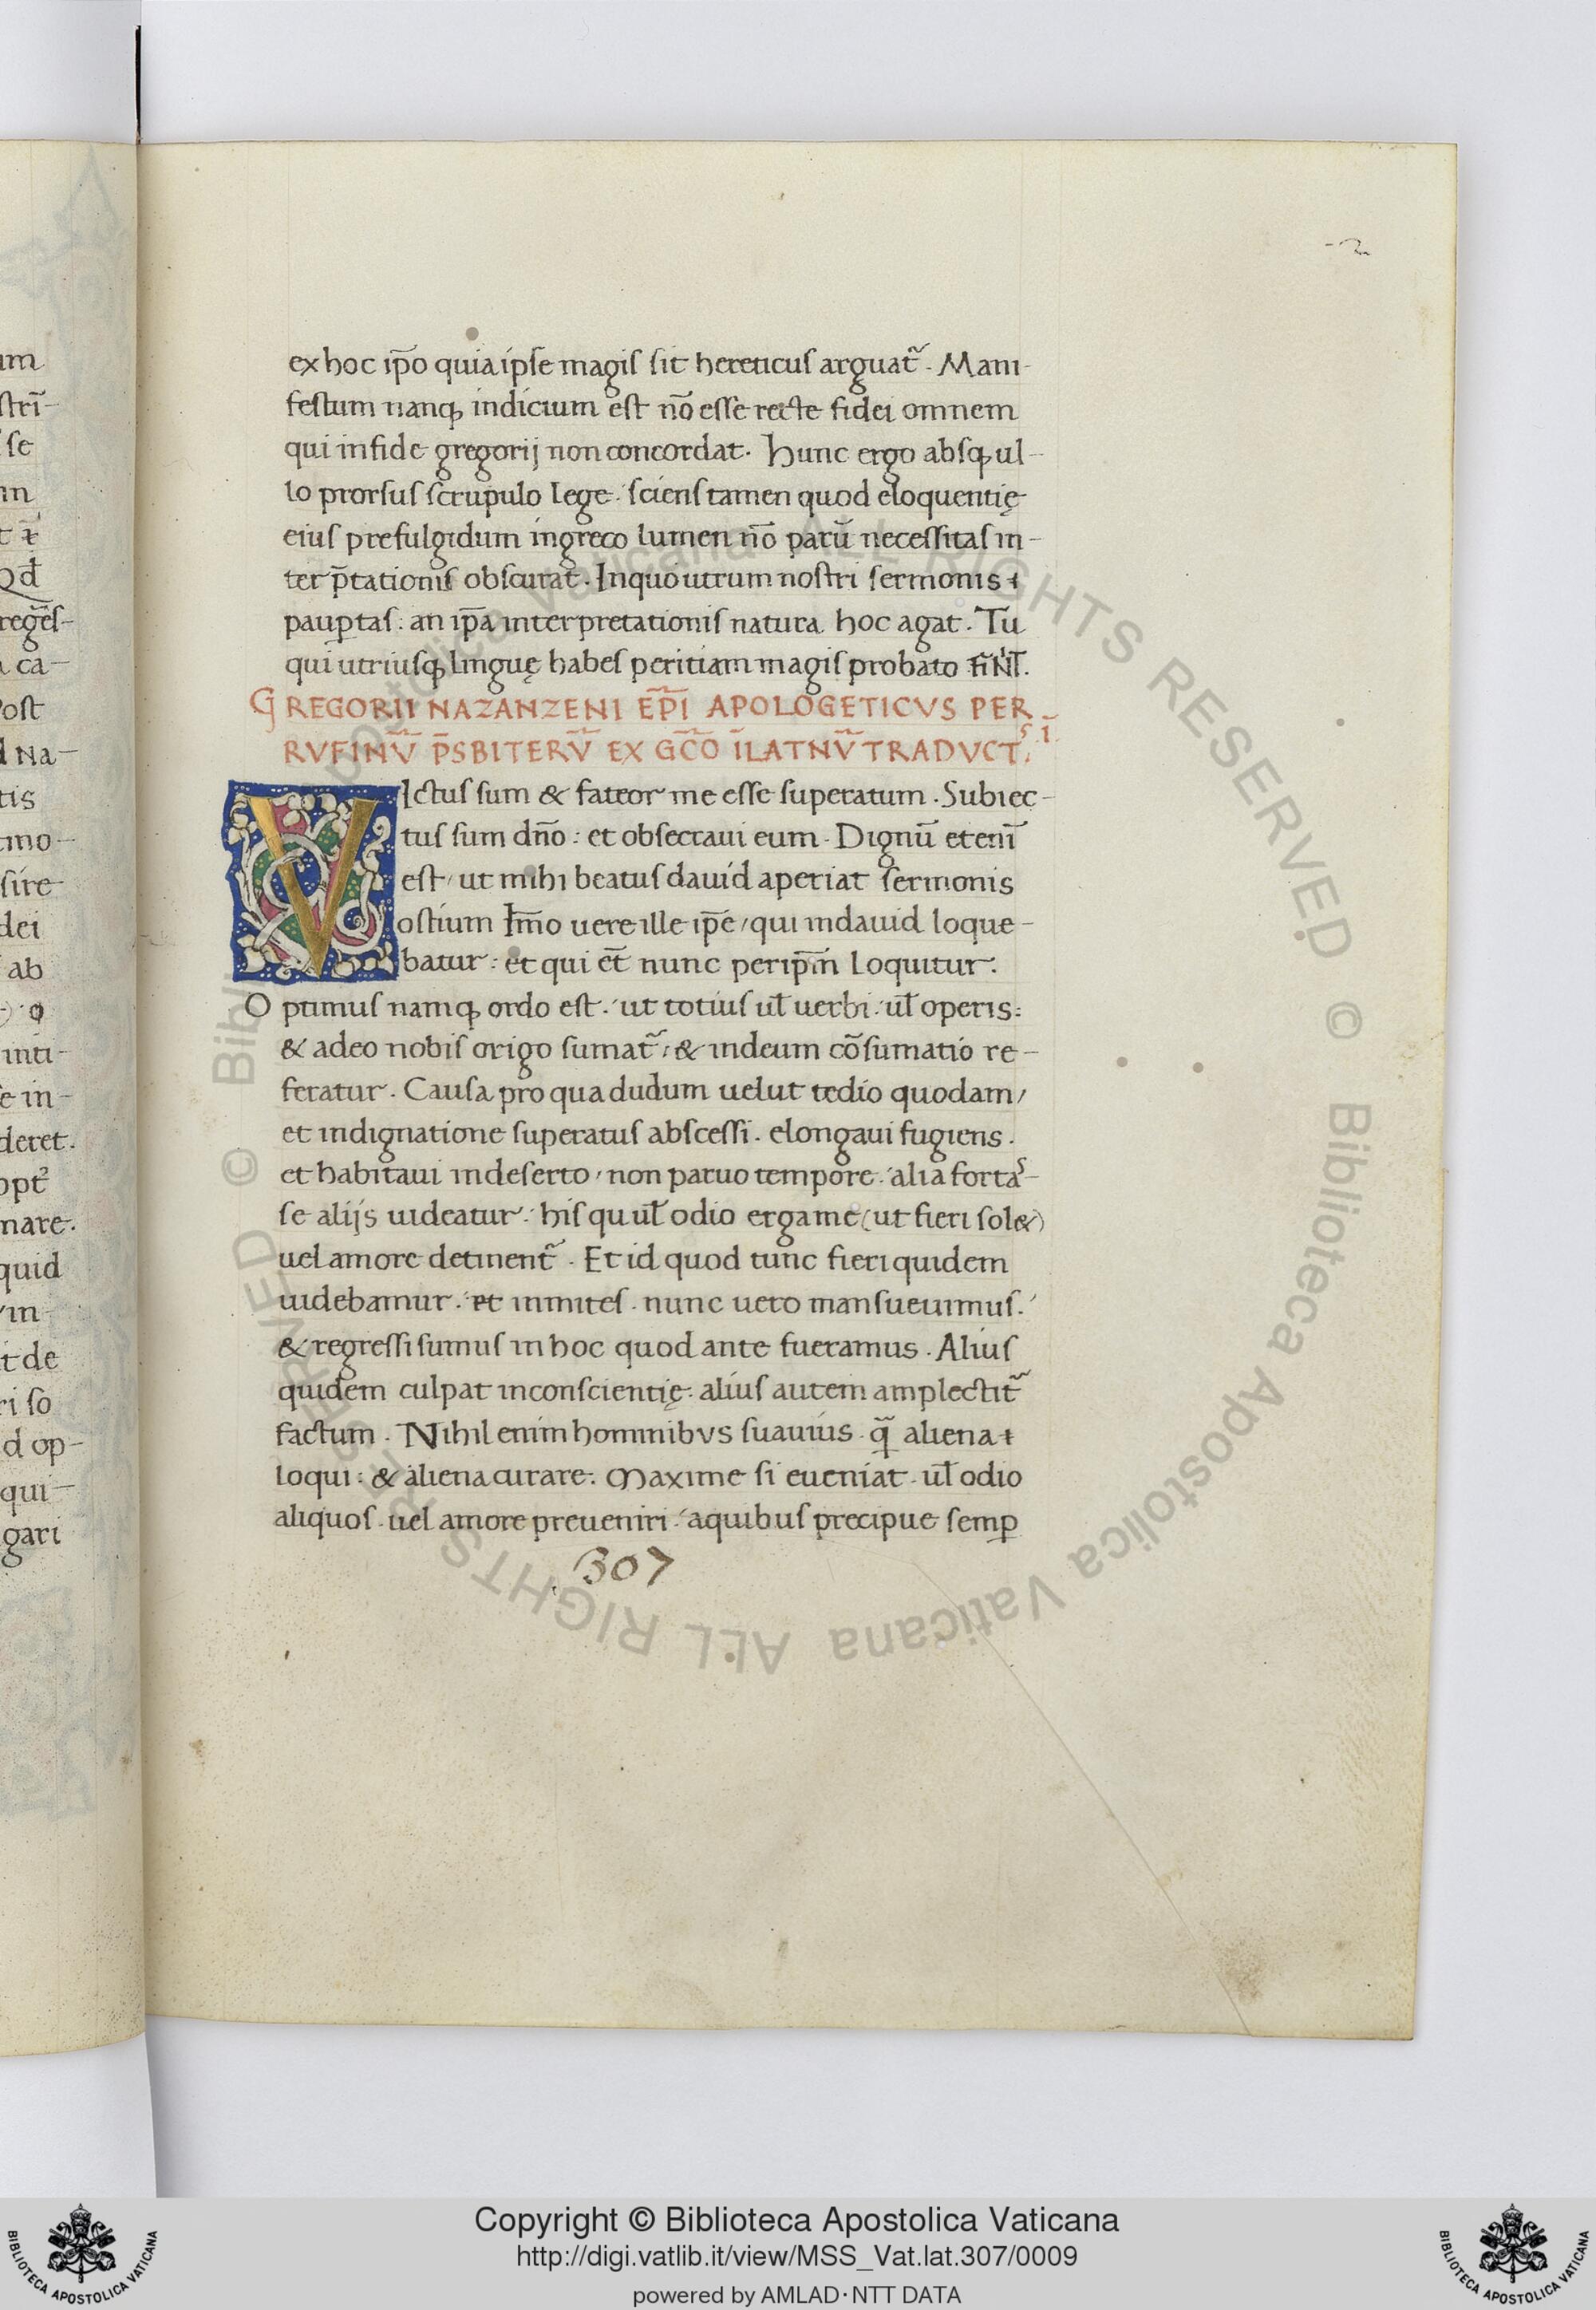 ex hoc ip̄o quia ipse magis sit hereticus arguat᷑. Mani-
festum nanqꝫ indicium est nō esse recte fidei omnem
qui in fide gregorij non concordat. Hunc ergo absqꝫ ul-
lo prorsus scrupulo lege: sciens tamen quod eloquentię
eius prefulgidum in greco lumen nō parū necessitas in-
terp̄tationis obscurat. In quo utrum nostri sermonis
paup̱tas: an ip̄a interpretationis natura hoc agat. Tu
qui utriusqꝫ linguę habes peritiam magis probato
GREGORII NAZANZENI EP̄I APOLOGETICVS PER
RVFINV̄ P̄SBITERV̄ EX GC̄O ĪLATNV̄ TRADVCT, S. I.
VIctus sum & fateor me esse superatum. Subiec-
tus sum dn̄o: et obsecraui eum. Dignū etenī
est, ut mihi beatus dauid aperiat sermonis
ostium Im̄o uere ille ip̄e, qui in dauid loque-
batur: et qui et̄ nunc per ip̄m̄ loquitur.
Optimus namqꝫ ordo est. ut totius ul̄ uerbi. ul̄ operis:
& a deo nobis origo sumat᷑: & in deum cōsumatio re-
feratur. Causa pro qua dudum uelut tedio quodam,
et indignatione superatus abscessi. elongaui fugiens.
et habitaui in deserto, non paruo tempore. alia forta-
se alijs uideatur: his qui ul̄ odio erga me (ut fieri sol&)
uel amore detinent᷑. Et id quod tunc fieri quidem
uidebamur. et inmites. nunc uero mansueuimus.
& regressi sumus in hoc quod ante fueramus. Alius
quidem culpat inconscientię. alius autem amplectit᷑
factum. Nihil enim hominibus suauius. q̄ aliena
loqui: & aliena curare. Maxime si eueniat. ul̄ odio
aliquos. uel amore preueniri. a quibus precipue semꝑ
307
um
strī-
se
in
Qd̄
ca-
ost
Na-
tis
mo-
sire
dei
ab
inti-
e in-
deret.
nare.
quid
in-
t de
ri so
d op-
qui-
gari
© Biblioteca Apostolica Vaticana ALL RIGHTS RESERVED © Biblioteca Apostolica Vaticana ALL RIGHTS RESERVED
Copyright © Biblioteca Apostolica Vaticana
http://digi.vatlib.it/view/MSS_Vat.lat.307/0009
powered by AMLAD·NTT DATA
BIBLIOTECA APOSTOLICA VATICANA
BIBLIOTECA APOSTOLICA VATICANA